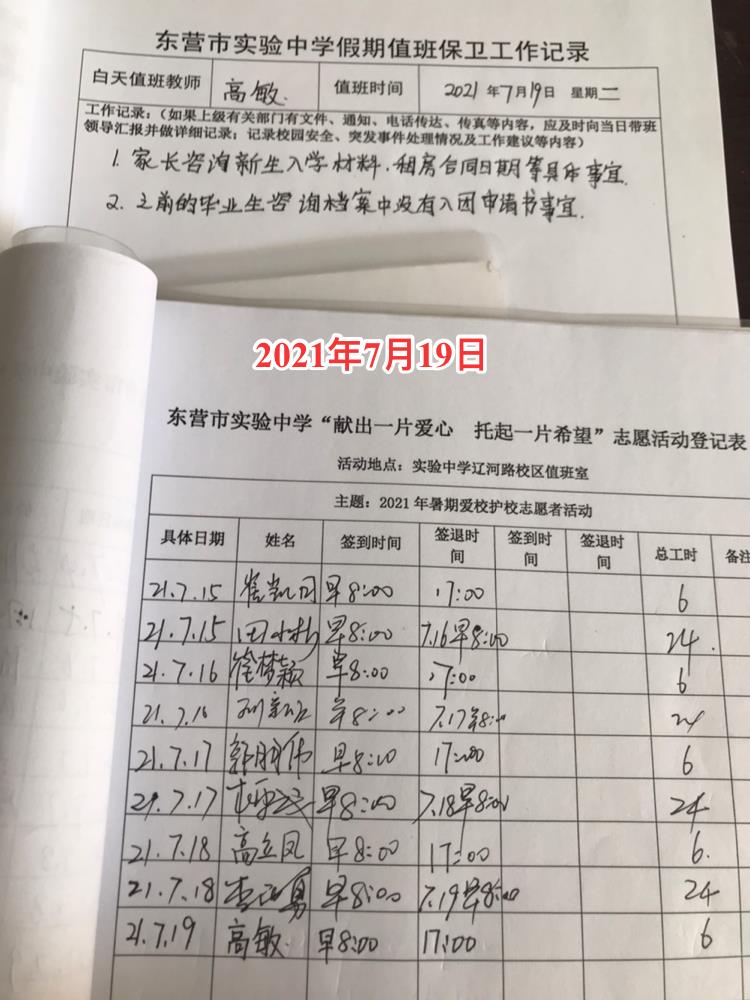 东营市实验中学假期值班保卫工作记录
白天值班教师 高敏 值班时间 2021年7月19日 星期二
工作记录：（如果上级有关部门有文件、通知、电话传达、传真等内容，应及时向当日带班
领导汇报并做详细记录；记录校园安全、突发事件处理情况及工作建议等内容）
1. 家长咨询新生入学材料、租房合同日期等具体事宜.
2. 之前的毕业生咨询档案中没有入团申请书事宜.
2021年7月19日
东营市实验中学“献出一片爱心 托起一片希望”志愿活动登记表
活动地点：实验中学辽河路校区值班室
主题：2021年暑期爱校护校志愿者活动
具体日期 姓名 签到时间 签退时间 签到时间 签退时间 总工时 备注
21.7.15 早8:00 17:00 6
21.7.15 早8:00 7.16早8:00 24
21.7.16 徐梦颖 早8:00 17:00 6
21.7.16 早8:00 7.17早8:00 24
21.7.17 郭朋伟 早8:00 17:00 6
21.7.17 早8:00 7.18早8:00 24
21.7.18 高立凤 早8:00 17:00 6.
21.7.18 早8:00 7.19早8:00 24
21.7.19 高敏. 早8:00 17:00 6